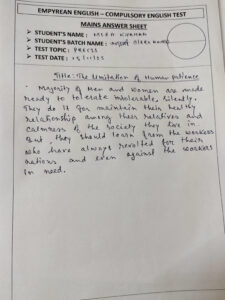 EMPYREAN ENGLISH – COMPULSORY ENGLISH TEST
MAINS ANSWER SHEET
➤ STUDENT'S NAME :
➤ STUDENT'S BATCH NAME :
➤ TEST TOPIC : PRECIS
➤ TEST DATE :
Title: The Limitation of Human patience
Majority of Men and Women are made
ready to tolerate intolerable, silently.
They do it for maintain their healthy
relationship among their relatives and
calmness of the society they live in.
But, they should learn from the workers
who have always revolted for their
nations and even against the workers
in need.